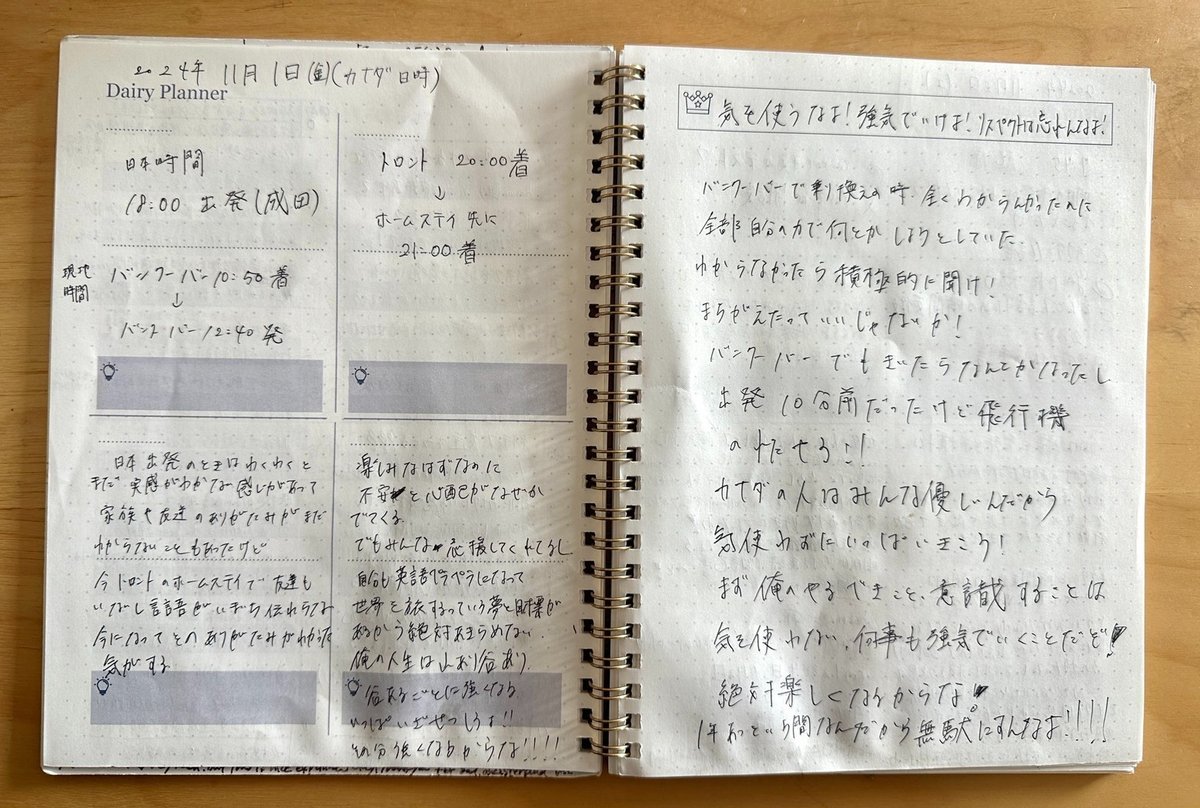 2024年 11月1日(金)(カナダ日時)
Dairy Planner
日本時間
18:00 出発(成田)
現地
時間
バンクーバー10:50着
↓
バンクーバー12:40発
トロント 20:00着
↓
ホームステイ先に
21:00着
日本出発のときはわくわくと
まだ実感がわかない感じがあって
家族や友達のありがたみがまだ
わからないこともあったけど
今トロントのホームステイで友達も
いなし言語がいまいち伝わらな
今になってそのありがたみがわかった
気がする
楽しみなはずなのに
不安と心配がなぜか
でてくる
でもみんな応援してくれてるし
自分も英語ペラペラになって
世界を旅するっていう夢と目標が
あるから絶対あきらめない.
俺の人生は山あり谷あり
谷あるごとに強くなる
いっぱいざせつしろよ!!
その分強くなるからな!!!!
気を使うなよ!強気でいけよ!リスペクトは忘れんなよ!
バンクーバーで乗り換えの時、全くわからんかったのに
全部自分の力で何とかしようとしていた.
わからなかったら積極的に聞け!
まちがえたっていいじゃないか!
バンクーバーでもきいたらなんとかなったし
出発10分前だったけど飛行機
のれたやろ!!
カナダの人はみんな優しいんだから
気使わずにいっぱいきこう!
まず俺のやるべきこと、意識することは
気を使わない、何事も強気でいくことだぞ!
絶対楽しくなるからな!
1年あっという間なんだから無駄にすんなよ!!!!